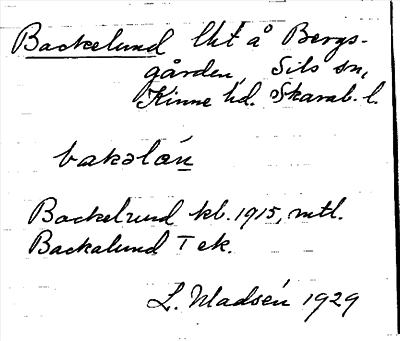 Backelund lht å Bergs-
gården, Sils sn,
Kinne hd. Skarab. l.
bakəlǽn
Backelund kb. 1915, mtl.
Backalund T ek.
L. Madsén 1929